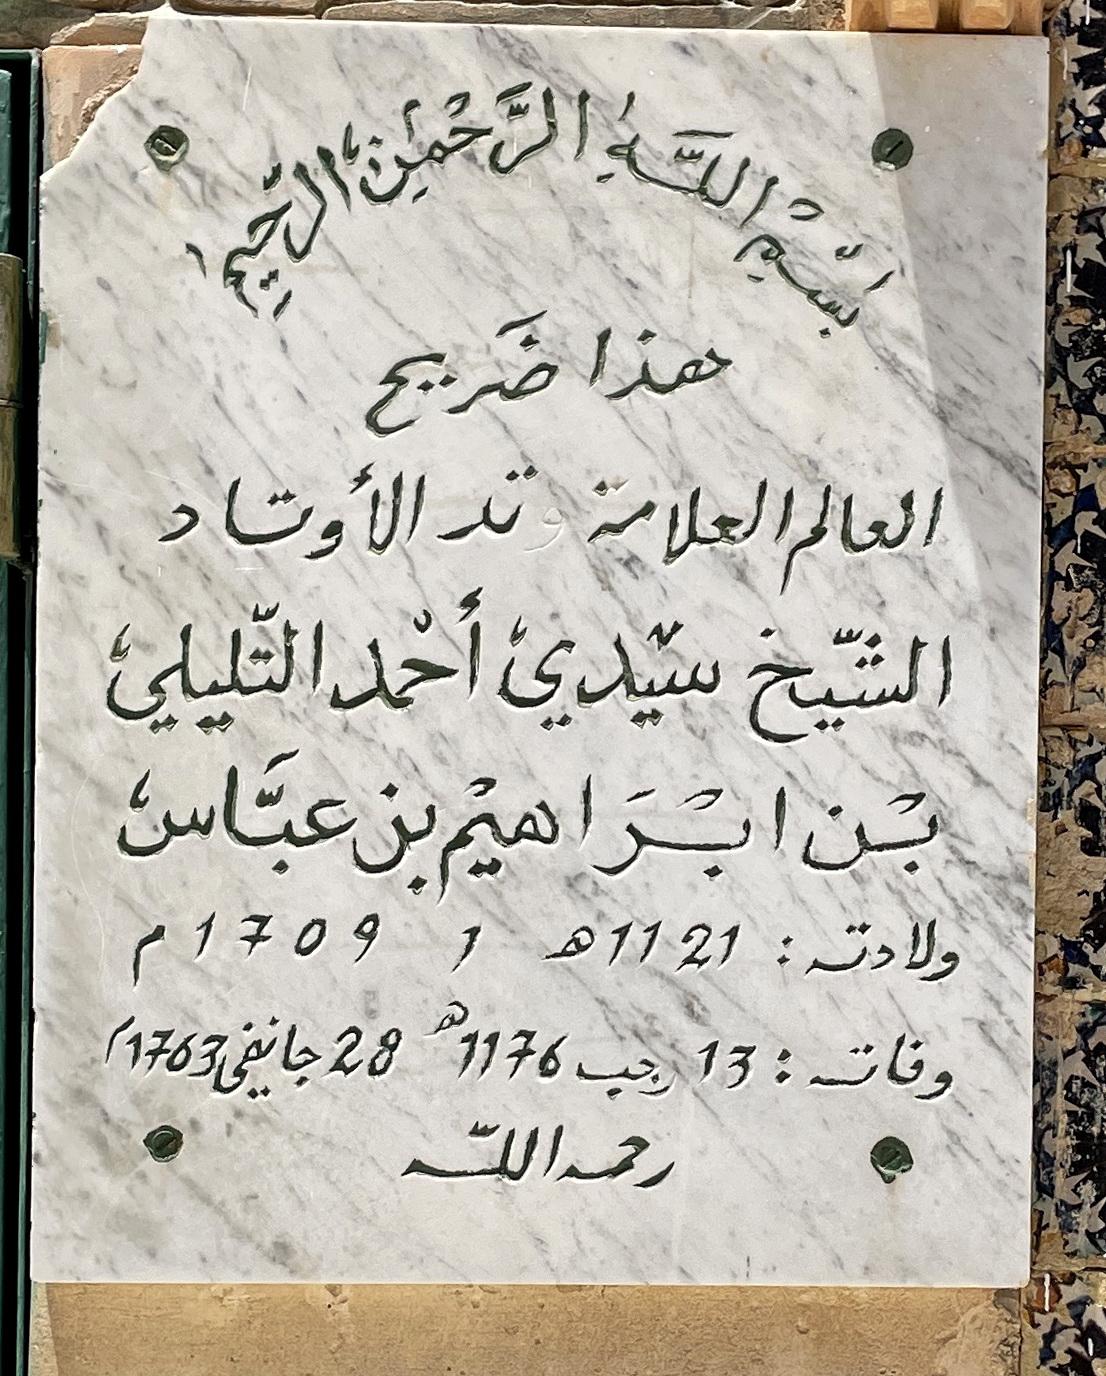 بِسْمِ اللّٰهِ الرَّحْمٰنِ الرَّحِيمِ
هذا ضَريح
العالم العلامة وتد الأوتاد
الشّيخ سيّدي أحْمد التّليلي
بْن ابْرَاهيْم بن عبَّاس
ولادته : 1121ھ / 1709 م
وفاته : 13 رجب 1176ھ 28 جانفي 1763م
رحمه اللّه